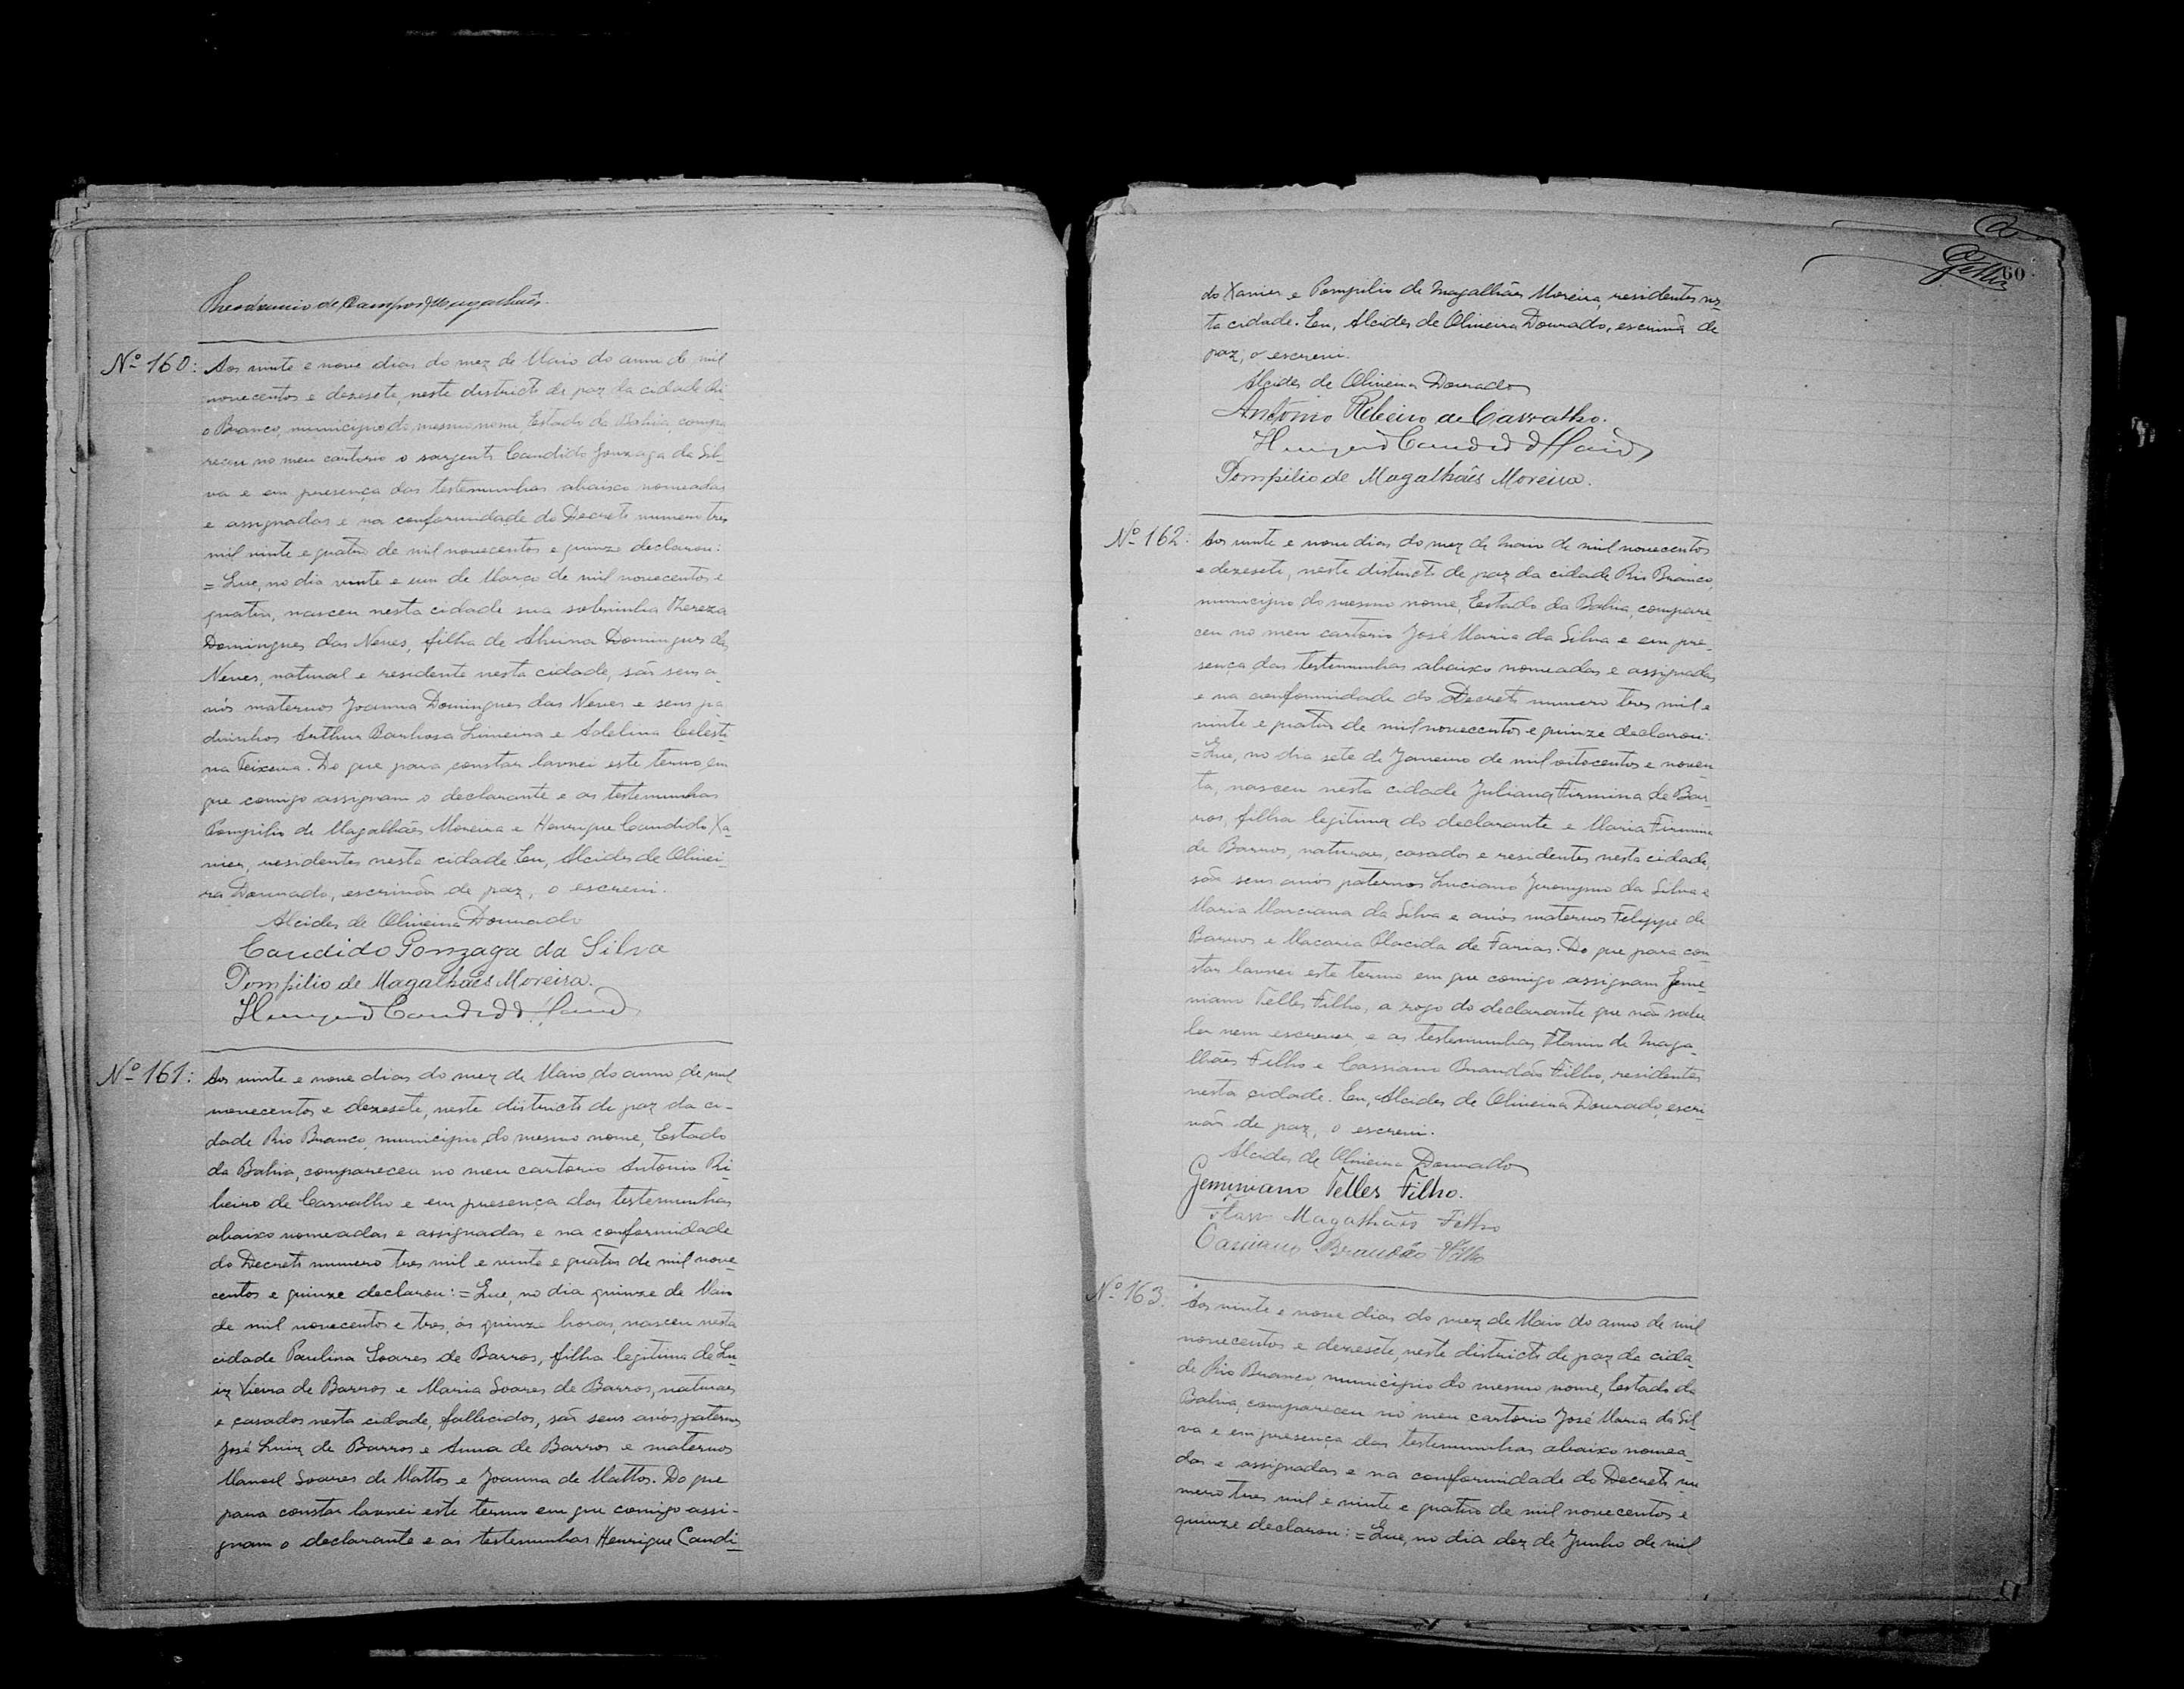 Theodomiro de Campos Magalhães.
Nº 160: Aos vinte e nove dias do mez de Maio do anno de mil
novecentos e dezesete, neste districto de paz da cidade Ri-
o Branco, municipio do mesmo nome, Estado da Bahia, compa
receu no meu cartorio o sargento Candido Gonzaga da Sil-
va e em presença das testemunhas abaixo nomeadas
e assignadas e na conformidade do Decreto numero tres
mil vinte e quatro de mil novecentos e quinze declarou:
= Que, no dia vinte e um de Março de mil novecentos e
quatro, nasceu nesta cidade sua sobrinha Thereza
Domingues das Neves, filha de Domingues das
Neves, natural e residente nesta cidade, são seus a-
vós maternos Joanna Domingues das Neves e seus pa
drinhos Arthur Barbosa Limeira e Adelina Celesti-
na Teixeira. Do que para constar lavrei este termo em
que comigo assignam o declarante e as testemunhas
Pompilio de Magalhães Moreira e Henrique Candido Xa-
vier, residentes nesta cidade Eu, Alcides de Olivei-
ra Dourado, escrivão de paz, o escrevi.
Alcides de Oliveira Dourado
Candido Gonzaga da Silva
Pompilio de Magalhães Moreira.
Nº 161: Aos vinte e nove dias do mez de Maio do anno de mil
novecentos e dezesete, neste districto de paz da ci-
dade Rio Branco, municipio do mesmo nome, Estado
da Bahia, compareceu no meu cartorio Antonio Ri-
beiro de Carvalho e em presença das testemunhas
abaixo nomeadas e assignadas e na conformidade
do Decreto numero tres mil e vinte e quatro de mil nove-
centos e quinze declarou: = Que, no dia quinze de Maio
de mil novecentos e tres, ás quinze horas, nasceu nesta
cidade Paulina Soares de Barros, filha legitima de Lu-
iz Vieira de Barros e Maria Soares de Barros, naturaes
e casados nesta cidade, fallecidos, são seus avós paternos
José Luiz de Barros e Anna de Barros e maternos
Manoel Soares de Mattos e Joanna de Mattos. Do que
para constar lavrei este termo em que comigo assi-
gnam o declarante e as testemunhas Henrique Candi-
60
do Xavier e Pompilio de Magalhães Moreira, residentes nes-
ta cidade. Eu, Alcides de Oliveira Dourado, escrivão de
paz, o escrevi.
Alcides de Oliveira Dourado
Antonio Ribeiro de Carvalho.
Pompilio de Magalhães Moreira.
Nº 162: Aos vinte e nove dias do mez de Maio de mil novecentos
e dezesete, neste districto de paz da cidade Rio Branco,
municipio do mesmo nome, Estado da Bahia, compare-
ceu no meu cartorio José Maria da Silva e em pre-
sença das testemunhas abaixo nomeadas e assignadas
e na conformidade do Decreto numero tres mil e
vinte e quatro de mil novecentos e quinze declarou:
= Que, no dia sete de Janeiro de mil oitocentos e noven-
ta, nasceu nesta cidade Juliana Firmina de Bar-
ros, filha legitima do declarante e Maria Firmina
de Barros, naturaes, casados e residentes nesta cidade,
são seus avós paternos Luciano Jeronymo da Silva e
Maria Marciana da Silva e avós maternos Felippe de
Barros e Macaria Placida de Farias. Do que para con-
star lavrei este termo em que comigo assignam Jemi-
niano Telles Filho, a rogo do declarante que não sabe
ler nem escrever, e as testemunhas Flavio de Maga-
lhães Filho e Cassiano Brandão Filho, residentes
nesta cidade. Eu, Alcides de Oliveira Dourado, escri-
vão de paz, o escrevi.
Alcides de Oliveira Dourado
Geminiano Telles Filho.
Flavio Magalhães Filho
Cassiano Brandão Filho
Nº 163. Aos vinte e nove dias do mez de Maio do anno de mil
novecentos e dezesete, neste districto de paz da cida-
de Rio Branco, municipio do mesmo nome, Estado da
Bahia, compareceu no meu cartorio José Maria da Sil-
va e em presença das testemunhas abaixo nomea-
das e assignadas e na conformidade do Decreto nu
mero tres mil e vinte e quatro de mil novecentos e
quinze declarou: = Que, no dia dez de Junho de mil